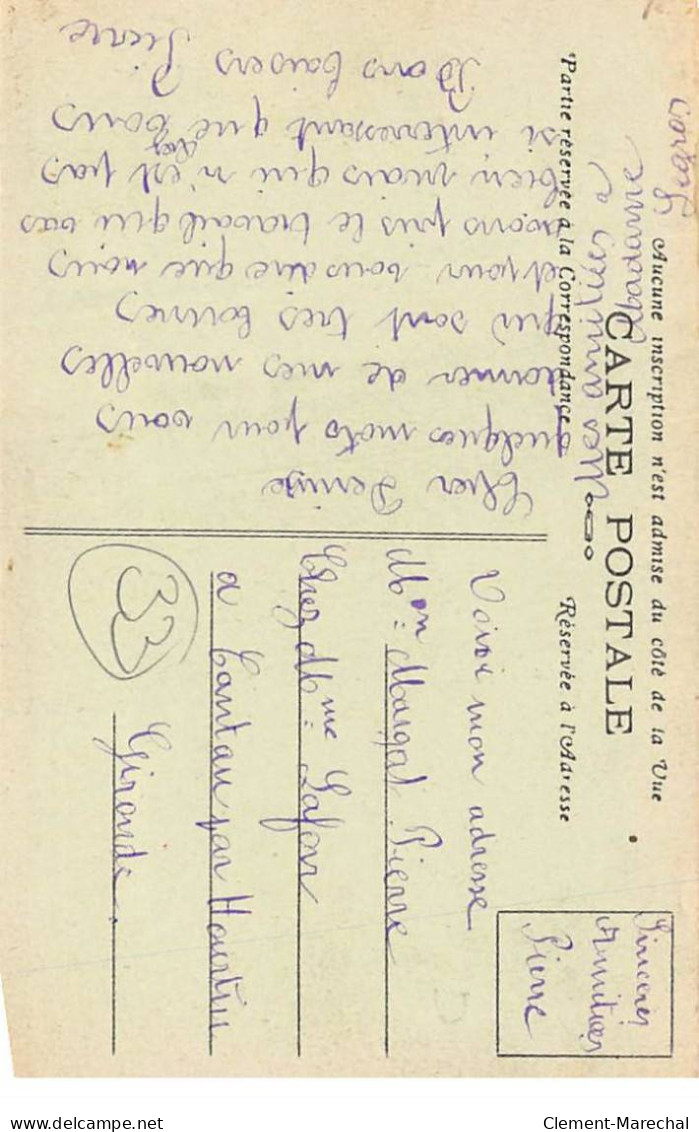 Aucune inscription n'est admise du côté de la Vue
CARTE POSTALE
Partie réservée à la Correspondance
Réservée à l'Adresse
Cher Denise
quelques mots pour vous
donner de mes nouvelles
qui sont très bonnes
et pour vous dire que nous
avons pris le travail qui vas
bien mais qui n'est pas
si interessant que
Bons baisers
Pierre
Mes amitiés a
Madame
Voici mon adresse
Mon: Margat Pierre
Chez Mme: Lafon
a Cantau par Hourtin
Gironde.
33
Sinceres
Amitiés
Pierre
Clement-Marechal
delcampe.net